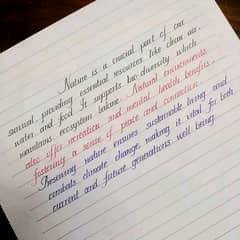 Nature is a crucial part of our
survival, providing essential resources like clean air,
water and food. It supports bio-diversity which
maintains ecosystem balance. Natural environments
also offer recreation and mental health benefits,
fostering a sense of peace and connection.
Preserving nature ensures sustainable living and
combats climate change, making it vital for both
current and future generations well being.